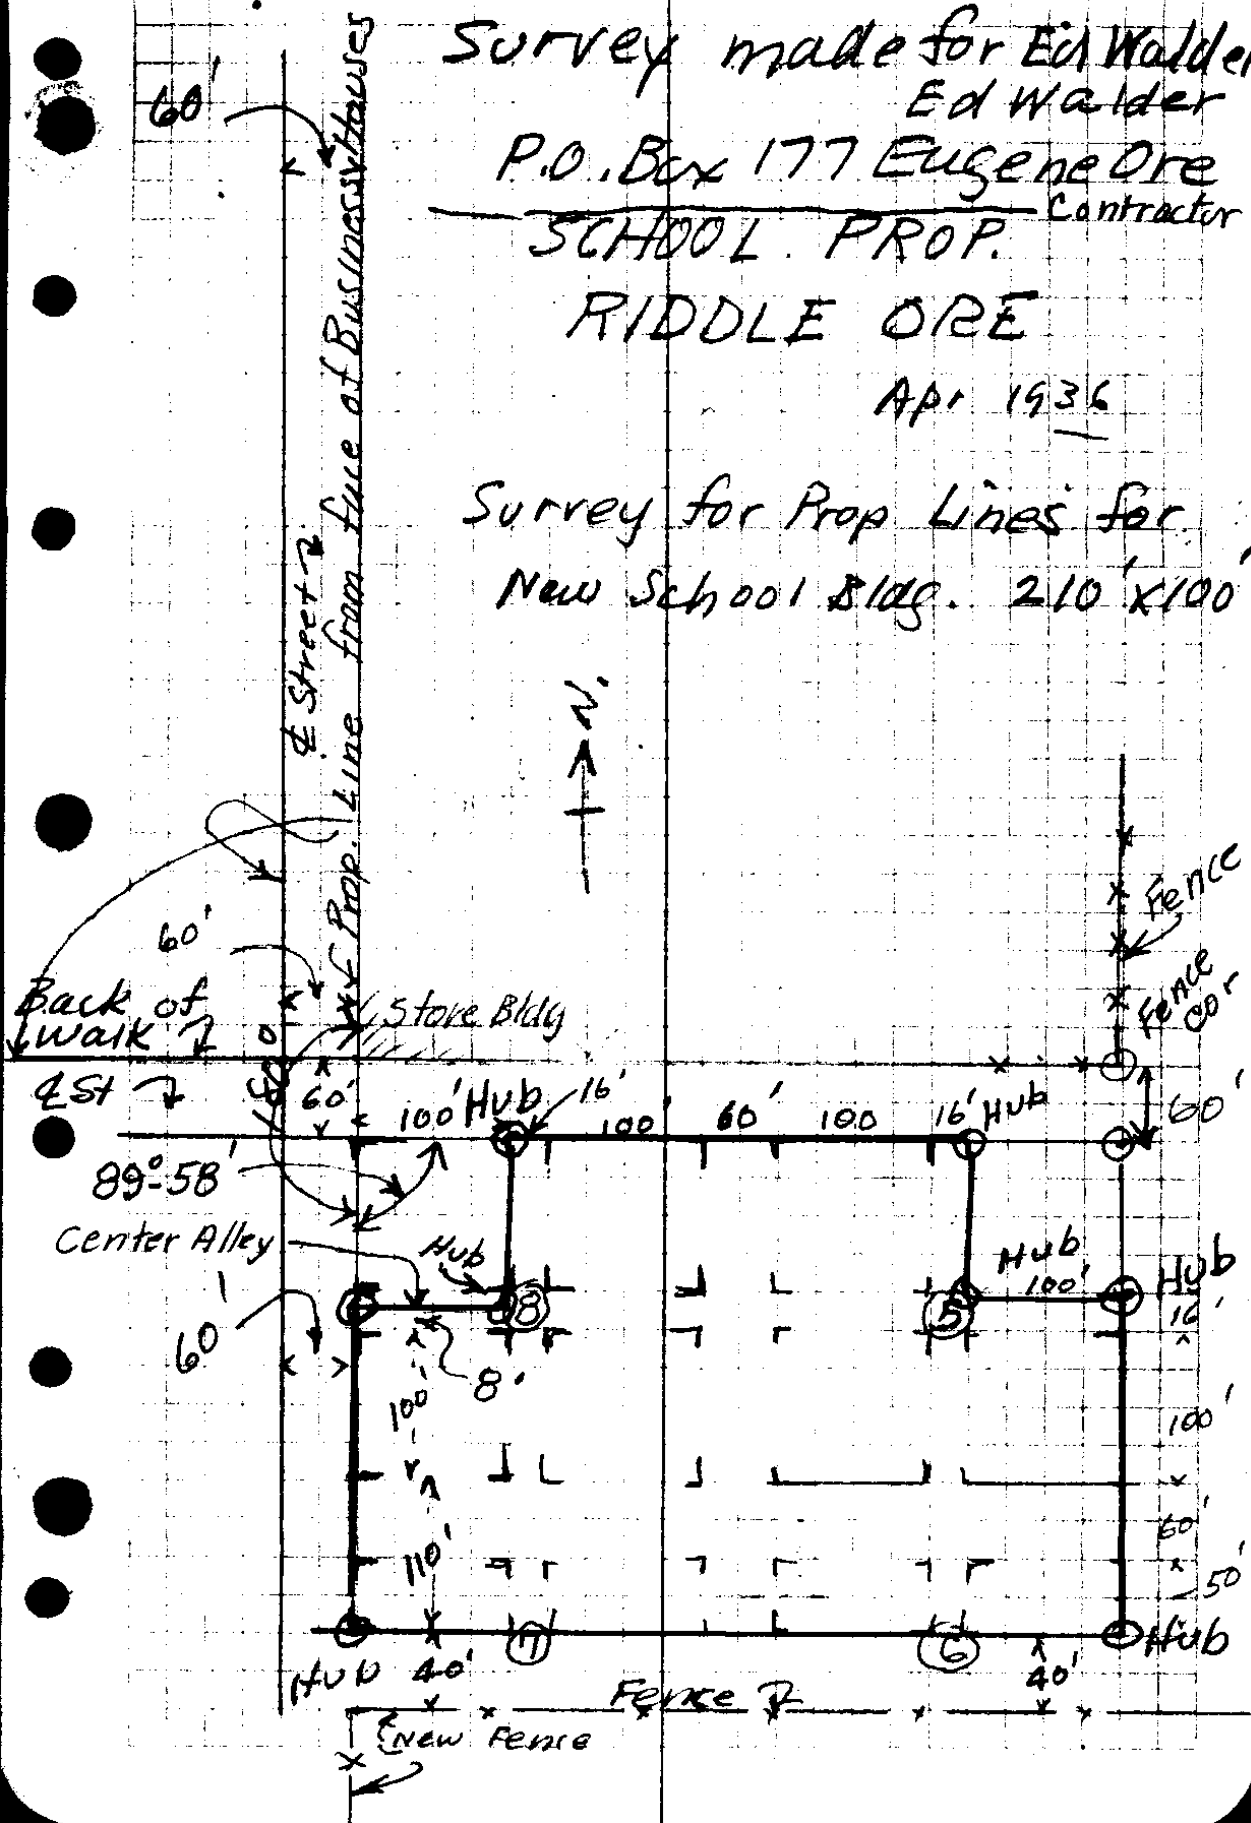 Survey made for Ed Walder
Ed Walder
P.O. Box 177 Eugene Ore
Contractor
SCHOOL. PROP.
RIDDLE ORE
Apr 1936
Survey for Prop Lines for
New School Bldg. 210' x 100'
60'
℄ Street
Prop. Line from face of Business Houses
N.
Fence
Fence
Cor
60'
Back of
Walk
Store Bldg
℄ St
60'
100' Hub 16'
100' 60' 100 16' Hub
60'
89°-58'
Center Alley
Hub
8
Hub
100'
5
Hub
16'
60'
8'
100'
100'
110'
60'
50'
7
6
Hub
Hub 40'
40'
Fence
New Fence